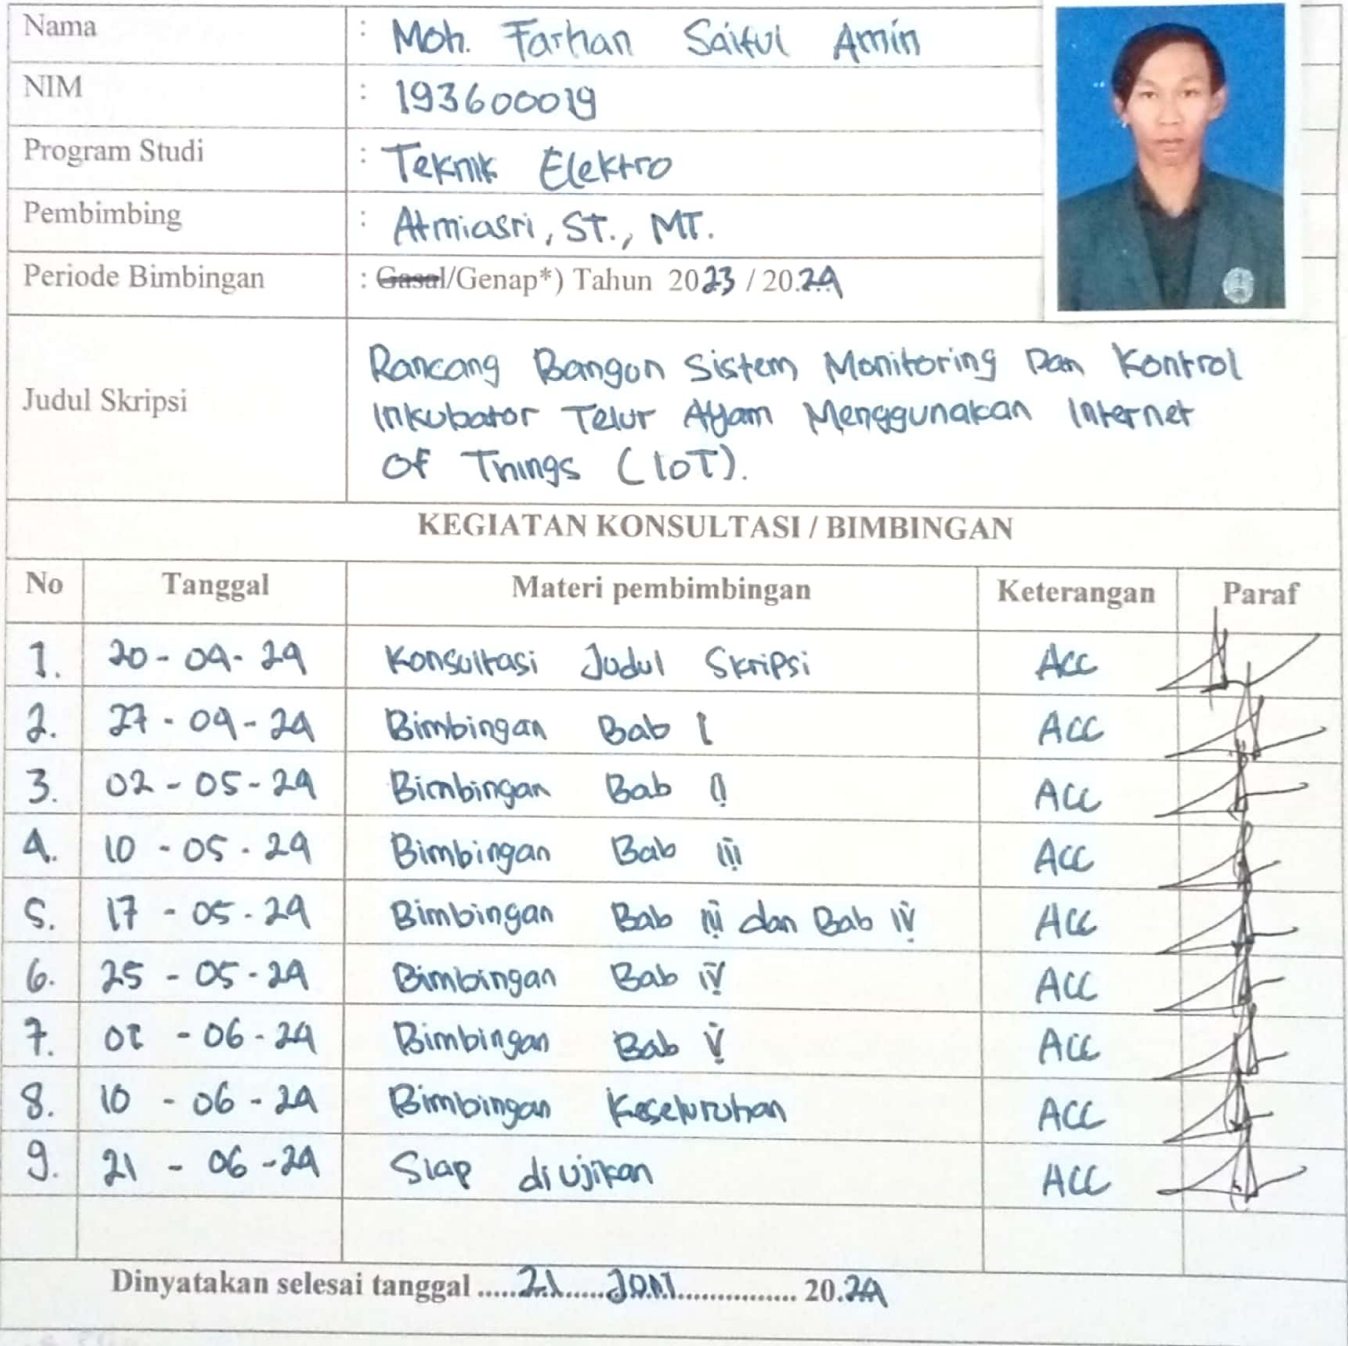 Nama : Moh. Farhan Saiful Amin
NIM : 193600019
Program Studi : Teknik Elektro
Pembimbing : Atmiasri, ST., MT.
Periode Bimbingan : Gasal/Genap*) Tahun 2023 / 20.24
Judul Skripsi
Rancang Bangun Sistem Monitoring Dan Kontrol
Inkubator Telur Ayam Menggunakan Internet
Of Things (IoT).
KEGIATAN KONSULTASI / BIMBINGAN
No Tanggal Materi pembimbingan Keterangan Paraf
1. 20 - 04 - 24 Konsultasi Judul Skripsi Acc
2. 27 - 04 - 24 Bimbingan Bab I ACC
3. 02 - 05 - 24 Bimbingan Bab II ACC
4. 10 - 05 - 24 Bimbingan Bab III ACC
5. 17 - 05 - 24 Bimbingan Bab III dan Bab IV ACC
6. 25 - 05 - 24 Bimbingan Bab IV ACC
7. 01 - 06 - 24 Bimbingan Bab V ACC
8. 10 - 06 - 24 Bimbingan Keseluruhan ACC
9. 21 - 06 - 24 Siap diujikan ACC
Dinyatakan selesai tanggal .....21......Juni............... 20.24